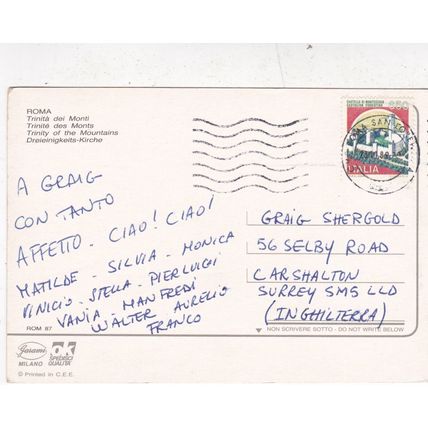 ROMA
Trinità dei Monti
Trinité des Monts
Trinity of the Mountains
Dreieinigkeits-Kirche
A GRAIG
CON TANTO
AFFETTO - CIAO! CIAO!
MATILDE - SILVIA - MONICA
VINICIO - STELLA - PIERLUIGI
VANIA - MANFREDI
WALTER AURELIO
FRANCO
ROM 87
Garami
MILANO
OK
SPEDISCI
QUALITÀ
© Printed in C.E.E.
ITALIA
GRAIG SHERGOLD
56 SELBY ROAD
CARSHALTON
SURREY SM5 LLD
(INGHILTERRA)
NON SCRIVERE SOTTO - DO NOT WRITE BELOW